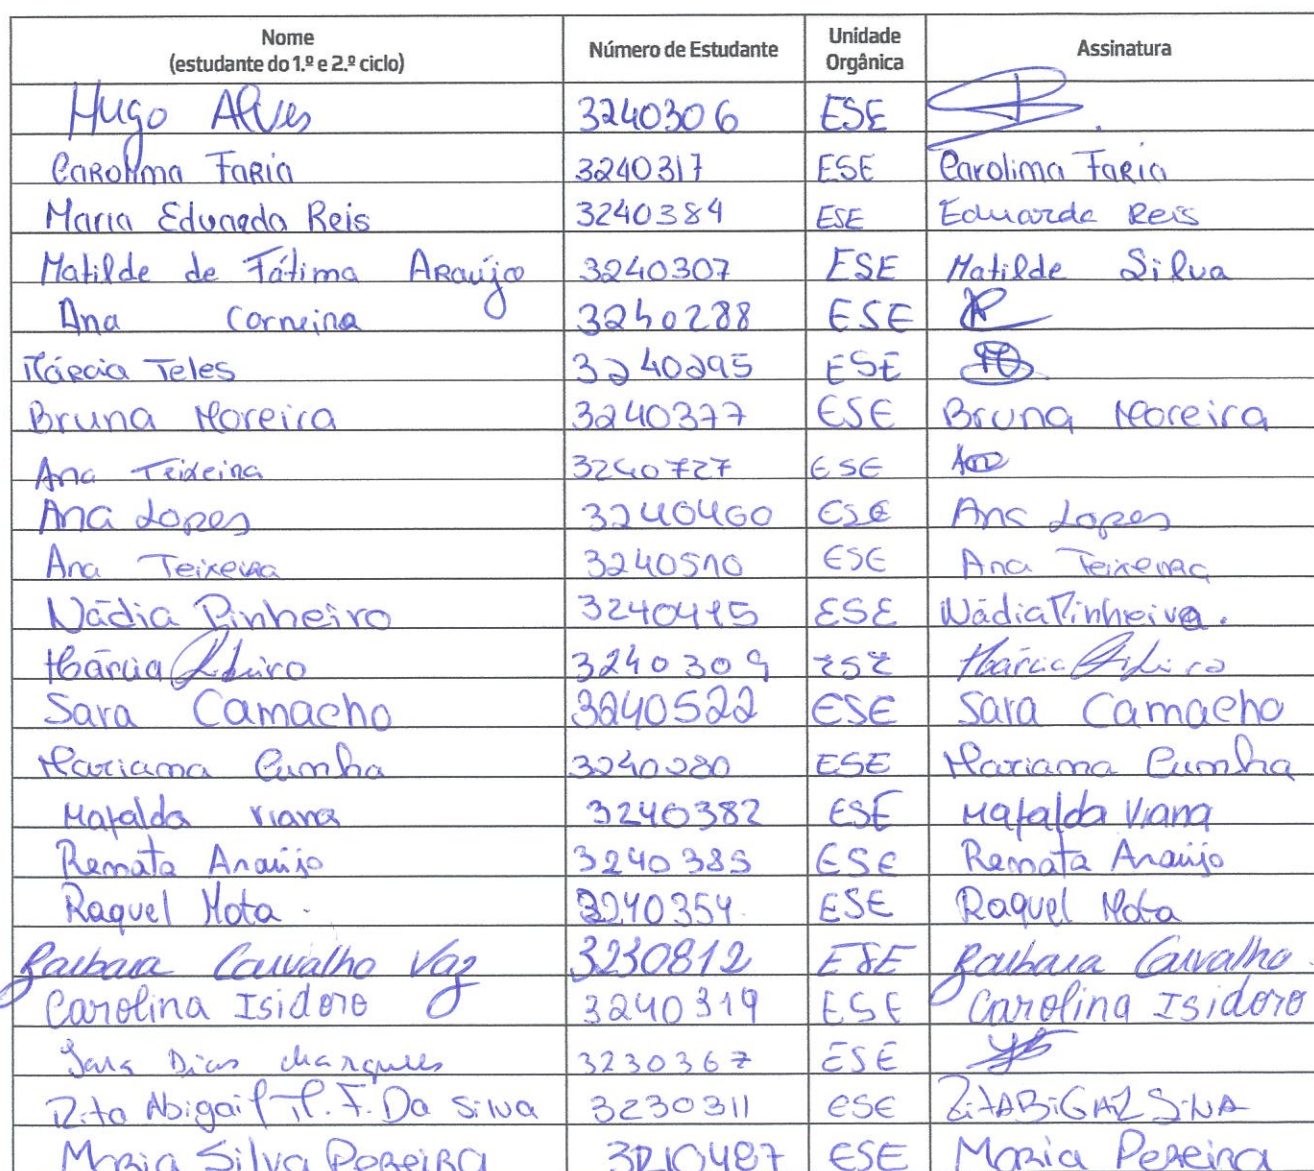 Nome Número de Estudante Unidade Assinatura
(estudante do 1.º e 2.º ciclo) Orgânica
Hugo Alves 3240306 ESE
Carolina Faria 3240317 ESE Carolina Faria
Maria Eduarda Reis 3240384 ESE Eduarda Reis
Matilde de Fátima Araújo 3240307 ESE Matilde Silva
Ana Correira 3240288 ESE
Márcia Teles 3240295 ESE
Bruna Moreira 3240377 ESE Bruna Moreira
Ana Teixeira 3240727 ESE Ana
Ana Lopes 3240460 ESE Ana Lopes
Ana Teixeira 3240510 ESE Ana Teixeira
Nádia Pinheiro 3240415 ESE Nádia Pinheiro.
Márcia Ribeiro 3240309 ESE Márcia Ribeiro
Sara Camacho 3240522 ESE Sara Camacho
Mariana Cunha 3240280 ESE Mariana Cunha
Mafalda Viana 3240382 ESE Mafalda Viana
Renata Araújo 3240385 ESE Renata Araújo
Raquel Mota . 3240354. ESE Raquel Mota
Barbara Carvalho Vaz 3230812 ESE Barbara Carvalho.
Carolina Isidoro 3240319 ESE Carolina Isidoro
Sara Dias Marques 3230367 ESE
Rita Abigail P. F. Da Silva 3230311 ESE RitABiGAil SilvA
Maria Silva Pereira 3210487 ESE Maria Pereira